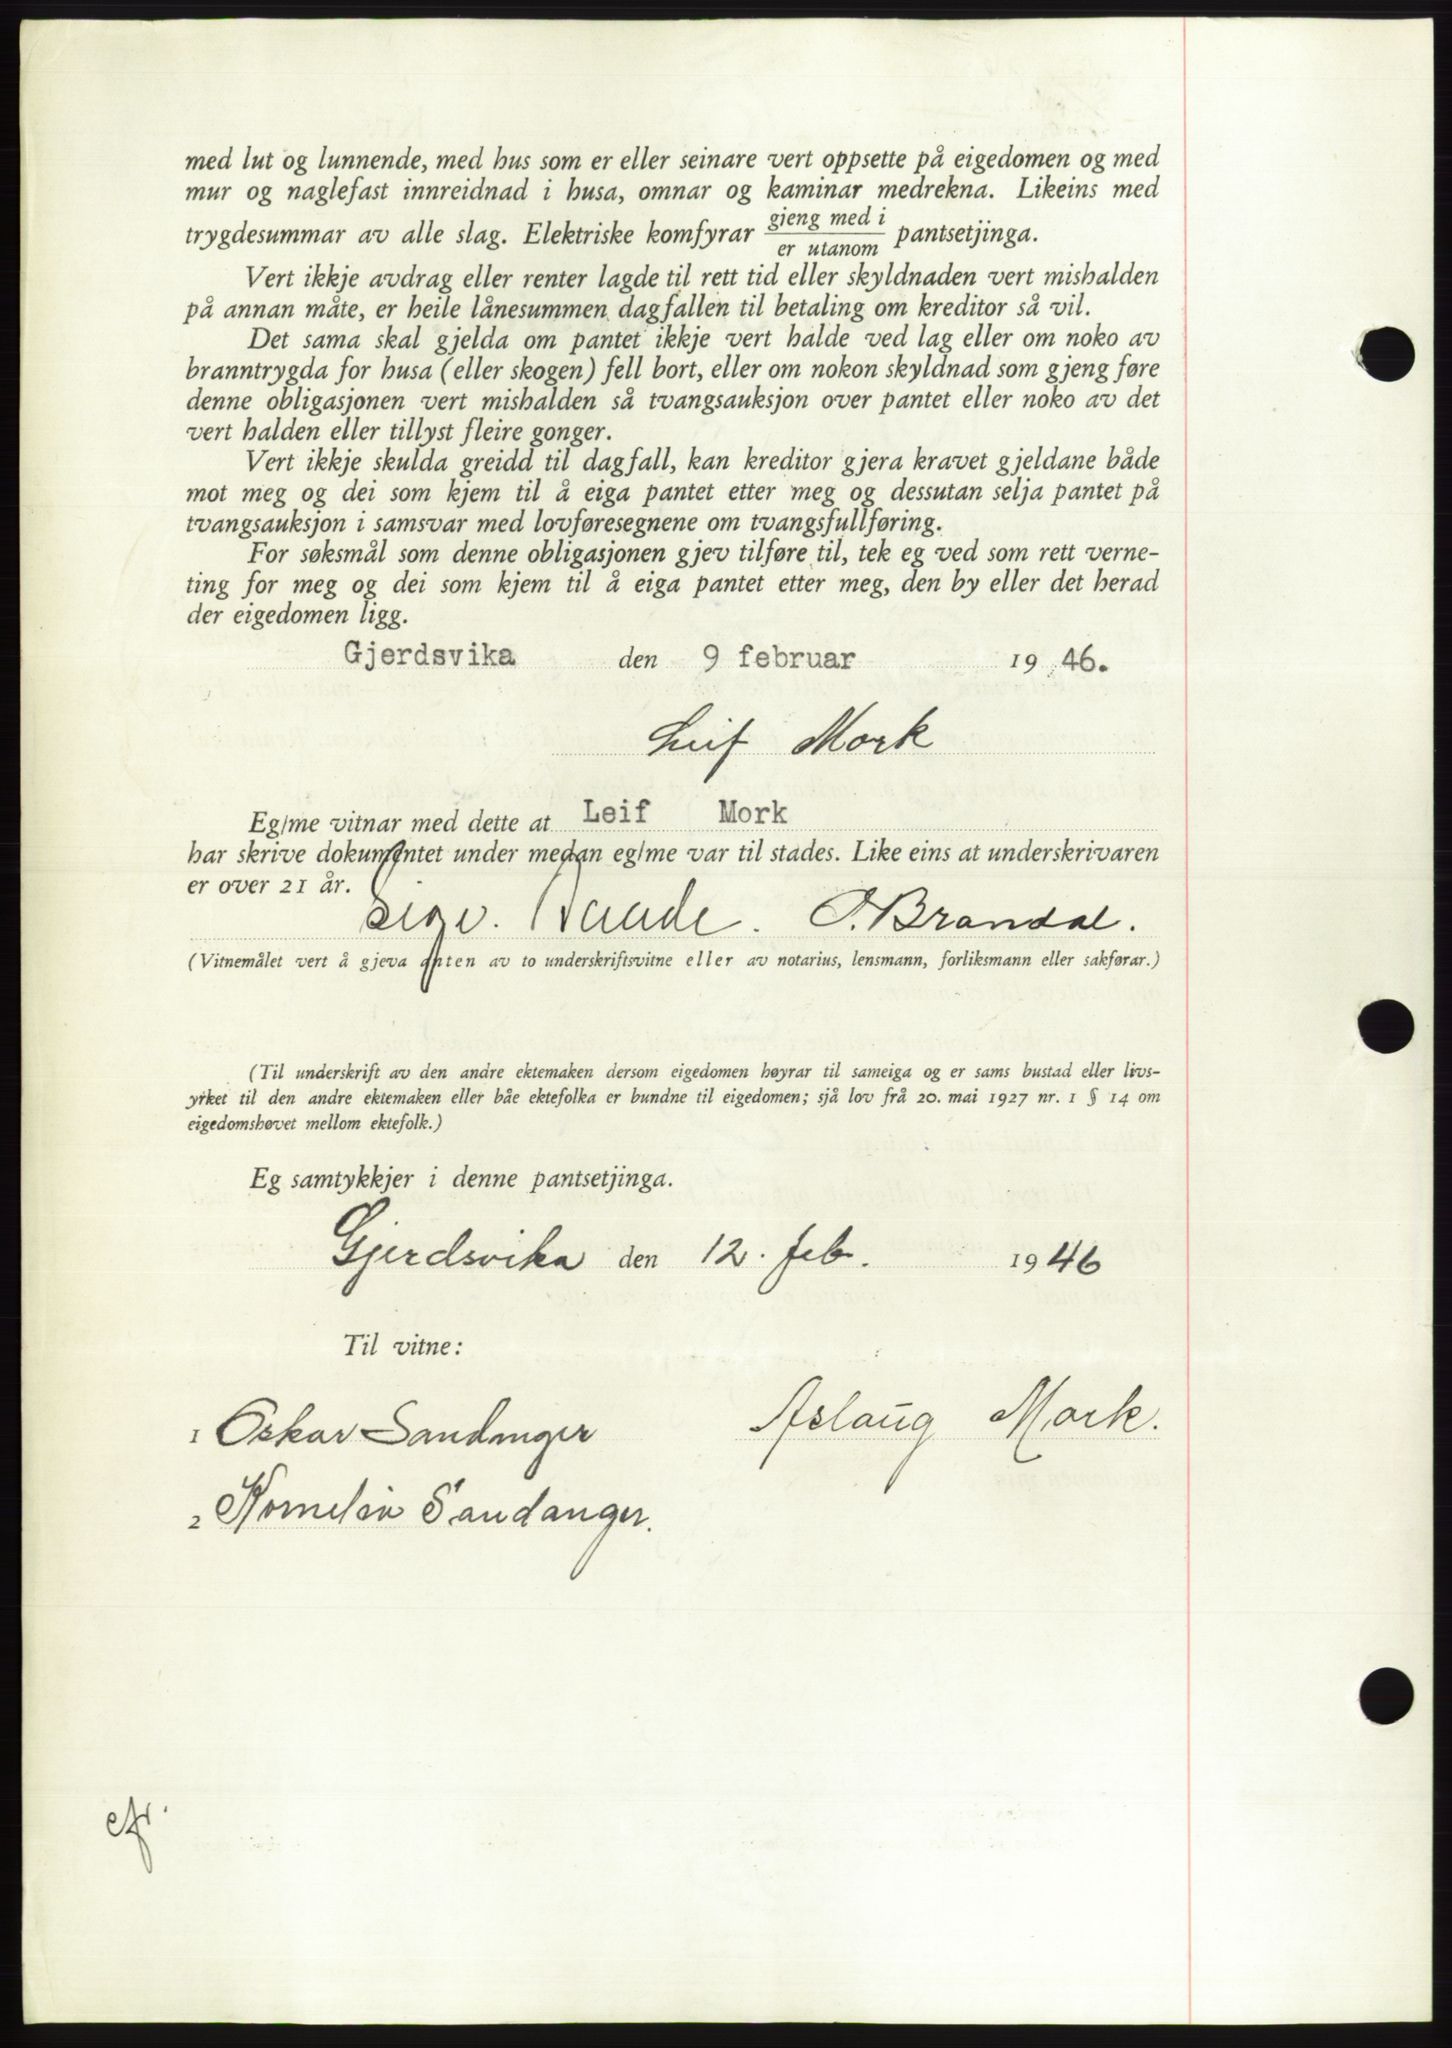 med lut og lunnende, med hus som er eller seinare vert oppsette på eigedomen og med
mur og naglefast innreidnad i husa, omnar og kaminar medrekna. Likeins med
trygdesummar av alle slag. Elektriske komfyrar gjeng med i / er utanom pantsetjinga.
Vert ikkje avdrag eller renter lagde til rett tid eller skyldnaden vert mishalden
på annan måte, er heile lånesummen dagfallen til betaling om kreditor så vil.
Det sama skal gjelda om pantet ikkje vert halde ved lag eller om noko av
branntrygda for husa (eller skogen) fell bort, eller om nokon skyldnad som gjeng føre
denne obligasjonen vert mishalden så tvangsauksjon over pantet eller noko av det
vert halden eller tillyst fleire gonger.
Vert ikkje skulda greidd til dagfall, kan kreditor gjera kravet gjeldane både
mot meg og dei som kjem til å eiga pantet etter meg og dessutan selja pantet på
tvangsauksjon i samsvar med lovføresegnene om tvangsfullføring.
For søksmål som denne obligasjonen gjev tilføre til, tek eg ved som rett verne-
ting for meg og dei som kjem til å eiga pantet etter meg, den by eller det herad
der eigedomen ligg.
Gjerdsvika den 9 februar 19 46.
Leif Mork
Eg/me vitnar med dette at Leif Mork
har skrive dokumentet under medan eg/me var til stades. Like eins at underskrivaren
er over 21 år.
Sigv. Haade. Brandal.
(Vitnemålet vert å gjeva anten av to underskriftsvitne eller av notarius, lensmann, forliksmann eller sakførar.)
(Til underskrift av den andre ektemaken dersom eigedomen høyrar til sameiga og er sams bustad eller livs-
yrket til den andre ektemaken eller båe ektefolka er bundne til eigedomen; sjå lov frå 20. mai 1927 nr. 1 § 14 om
eigedomshøvet mellom ektefolk.)
Eg samtykkjer i denne pantsetjinga.
Gjerdsvika den 12. feb. 1946
Til vitne:
1 Oskar Sandanger Aslaug Mork.
2 Kornelia Sandanger.